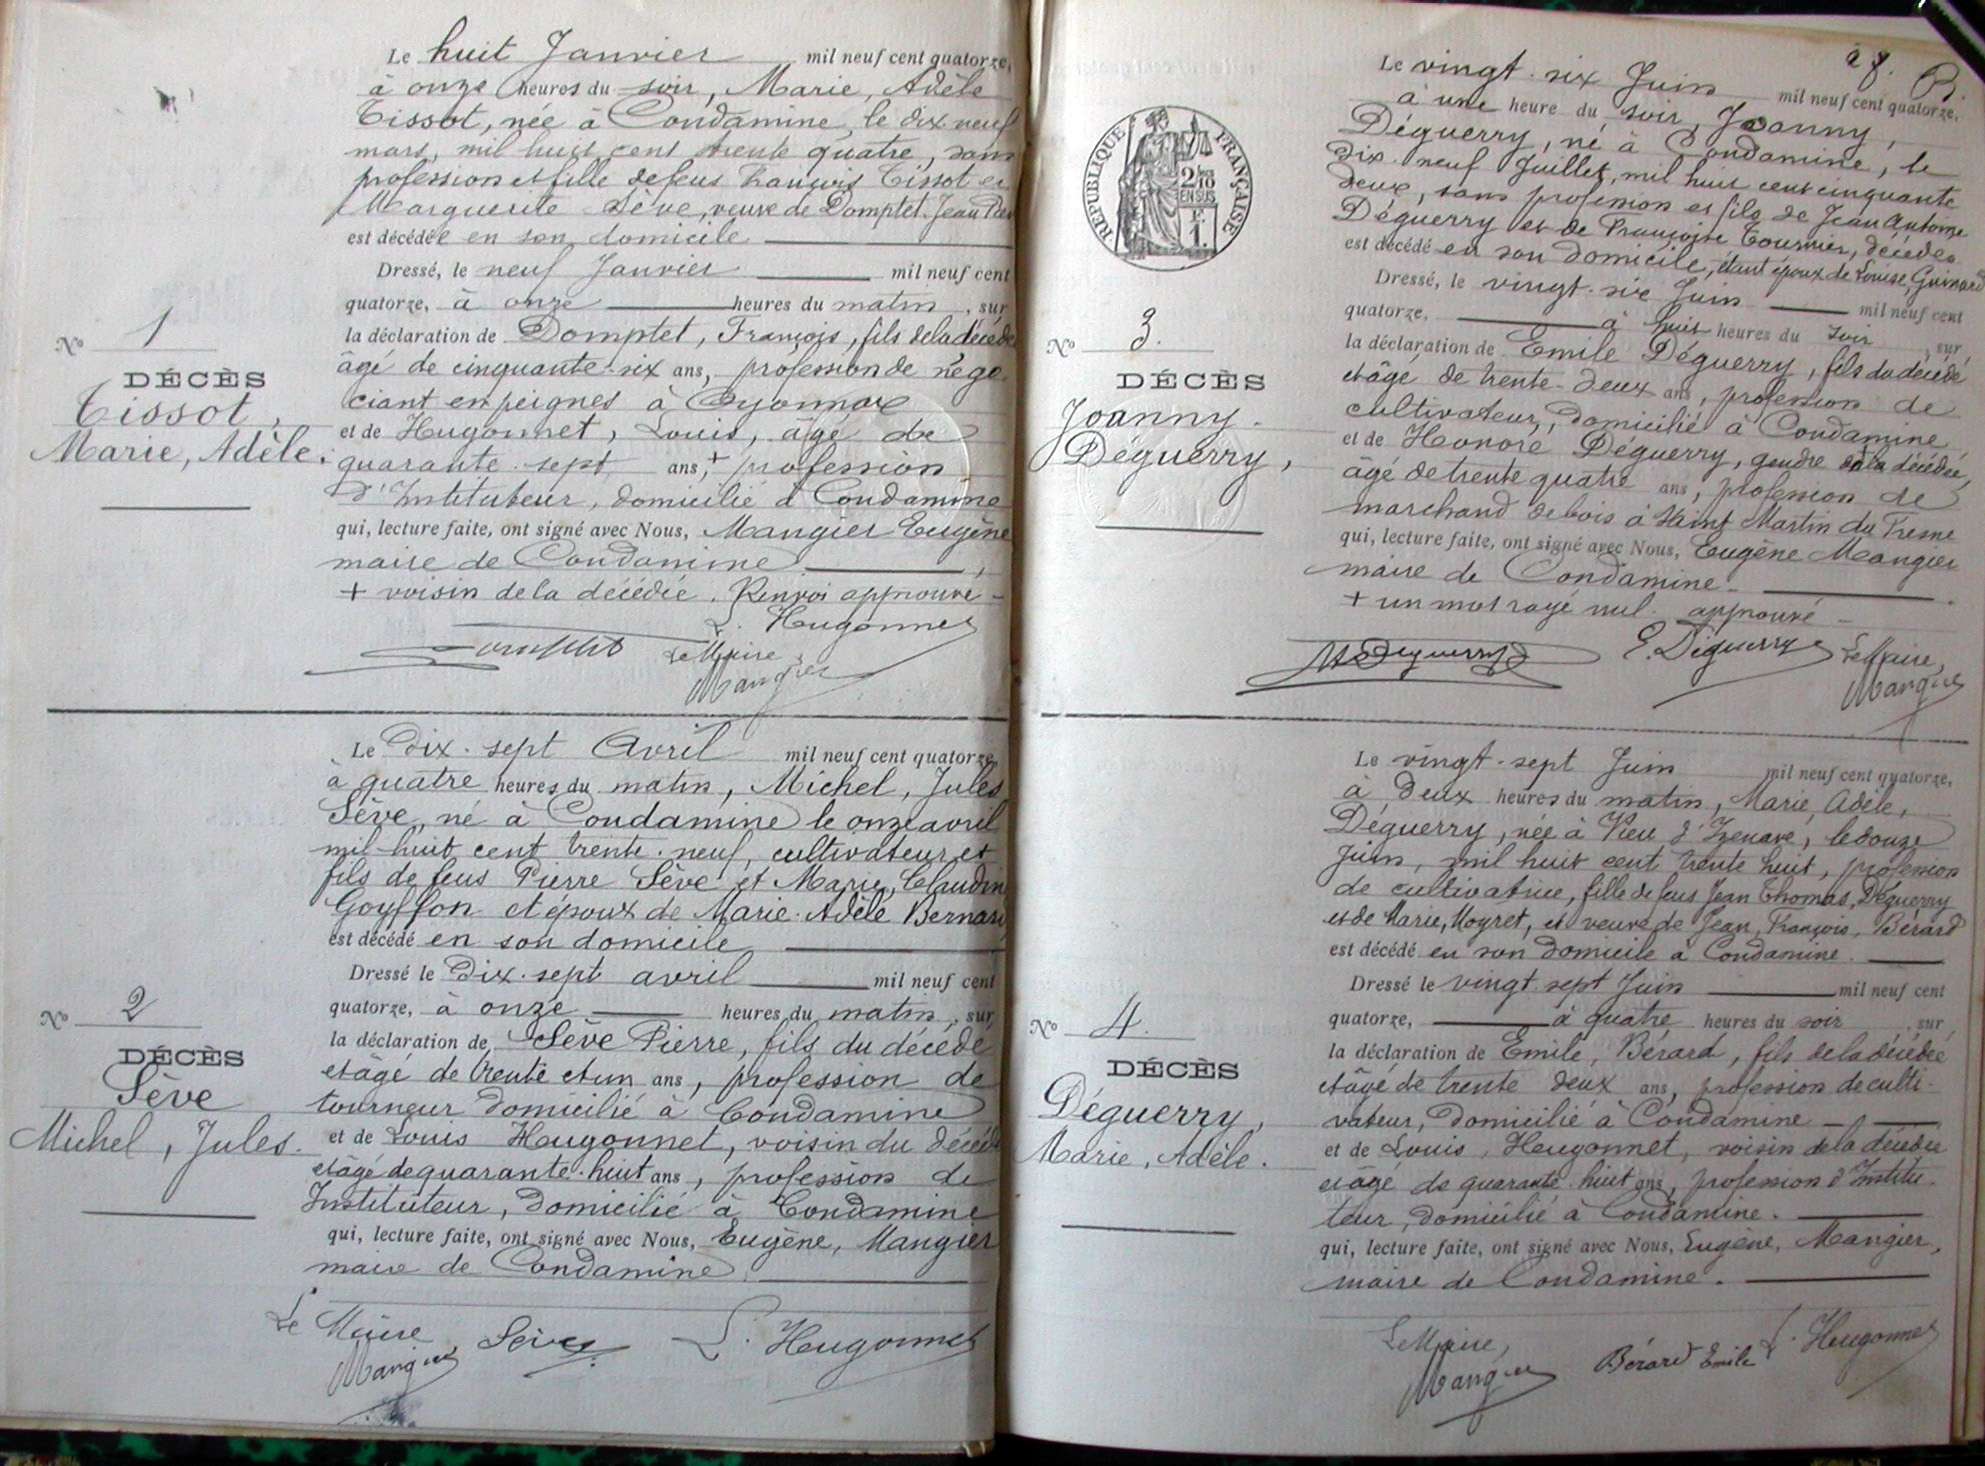 Le huit Janvier mil neuf cent quatorze,
à onze heures du soir, Marie, Adèle
Tissot, née à Condamine, le dix neuf
mars, mil huit cent trente quatre, sans
profession et fille de feus François Tissot et
Marguerite Sève, veuve de Domptet Jean
est décédée en son domicile
Dressé, le neuf Janvier mil neuf cent
quatorze, à onze heures du matin, sur
la déclaration de Domptet, François, fils de la décédée
âgé de cinquante-six ans, profession de négo
ciant en peignes à Oyonnax
et de Hugonnet, Louis, agé de
quarante-sept ans, + profession
d'Instituteur, domicilié à Condamine
qui, lecture faite, ont signé avec Nous, Mangier Eugène
maire de Condamine,
+ voisin de la décédée. Renvoi approuvé -
L. Hugonnet
Domptet Le Maire
Mangier
No 1
DÉCÈS
Tissot,
Marie, Adèle.
Le Dix-sept Avril mil neuf cent quatorze
à quatre heures du matin, Michel, Jules
Sève, né à Condamine le onze avril
mil huit cent trente-neuf, cultivateur et
fils de feus Pierre Sève et Marie, Claudin
Goyffon et époux de Marie-Adèle Bernard
est décédé en son domicile
Dressé le Dix-sept avril mil neuf cent
quatorze, à onze heures du matin, sur
la déclaration de Sève Pierre, fils du décédé
et âgé de trente et un ans, profession de
tourneur domicilié à Condamine
et de Louis Hugonnet, voisin du décédé
et âgé de quarante-huit ans, profession de
Instituteur, domicilié à Condamine
qui, lecture faite, ont signé avec Nous, Eugène, Mangier
maire de Condamine
Le Maire
Mangier Sève L. Hugonnet
No 2
DÉCÈS
Sève
Michel, Jules.
Le vingt-six Juin mil neuf cent quatorze,
à une heure du soir, Joanny,
Déguerry, né à Condamine, le
dix-neuf Juillet, mil huit cent cinquante
deux, sans profession et fils de Jean Antoine
Déguerry et de Françoise Tournier, décédés
est décédé en son domicile, étant époux de Louise, Guinard
Dressé, le vingt-six Juin mil neuf cent
quatorze, à huit heures du soir, sur
la déclaration de Emile Déguerry, fils du décédé
et âgé de trente-deux ans, profession de
cultivateur, domicilié à Condamine
et de Honoré Déguerry, gendre de la décédée,
âgé de trente quatre ans, profession de
marchand de bois à Saint Martin du Fresne
qui, lecture faite, ont signé avec Nous, Eugène Mangier
maire de Condamine.
+ un mot rayé nul. approuvé -
H Déguerry E. Déguerry Le Maire,
Mangier
RÉPUBLIQUE FRANÇAISE
2/10
EN SUS
F.
1.
No 3.
DÉCÈS
Joanny.
Déguerry,
Le vingt-sept Juin mil neuf cent quatorze,
à deux heures du matin, Marie, Adèle,
Déguerry, née à Vieu d'Izenave, le douze
Juin, mil huit cent trente huit, profession
de cultivatrice, fille de feus Jean Thomas, Déguerry
et de Marie, Moyret, et veuve de Jean, François, Bérard
est décédé en son domicile à Condamine.
Dressé le vingt-sept Juin mil neuf cent
quatorze, à quatre heures du soir, sur
la déclaration de Emile, Bérard, fils de la décédée
et âgé de trente deux ans, profession de culti-
vateur, domicilié à Condamine -
et de Louis, Hugonnet, voisin de la décédée
et âgé de quarante-huit ans, profession d'Institu-
teur, domicilié à Condamine.
qui, lecture faite, ont signé avec Nous, Eugène, Mangier,
maire de Condamine.
Le Maire,
Mangier Bérard Emile L. Hugonnet
No 4.
DÉCÈS
Déguerry,
Marie, Adèle.